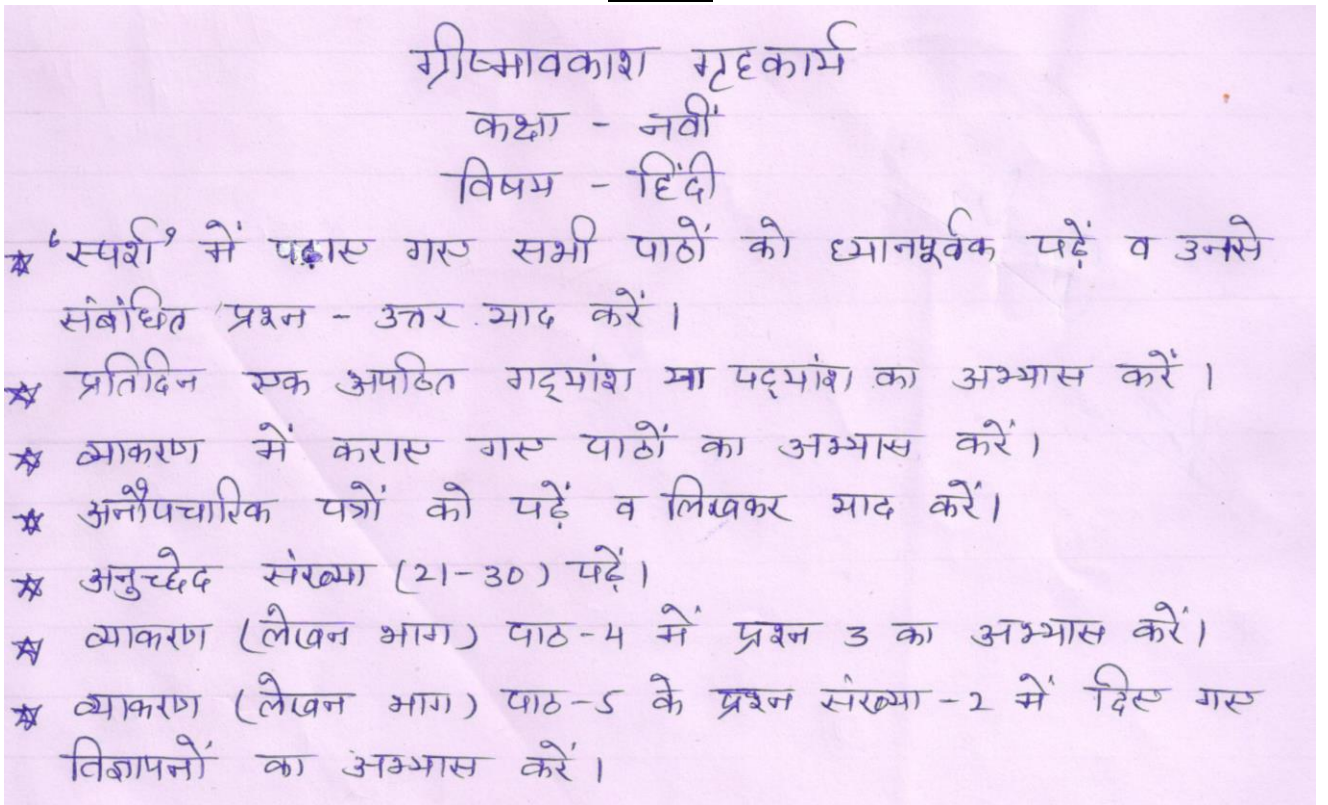 ग्रीष्मावकाश गृहकार्य
कक्षा - नवीं
विषय - हिंदी
☆ ‘स्पर्श’ में पढ़ाए गए सभी पाठों को ध्यानपूर्वक पढ़ें व उनसे
संबंधित प्रश्न - उत्तर याद करें।
☆ प्रतिदिन एक अपठित गद्यांश या पद्यांश का अभ्यास करें।
☆ व्याकरण में कराए गए पाठों का अभ्यास करें।
☆ अनौपचारिक पत्रों को पढ़ें व लिखकर याद करें।
☆ अनुच्छेद संख्या (21-30) पढ़ें।
☆ व्याकरण (लेखन भाग) पाठ-4 में प्रश्न 3 का अभ्यास करें।
☆ व्याकरण (लेखन भाग) पाठ-5 के प्रश्न संख्या -2 में दिए गए
विज्ञापनों का अभ्यास करें।